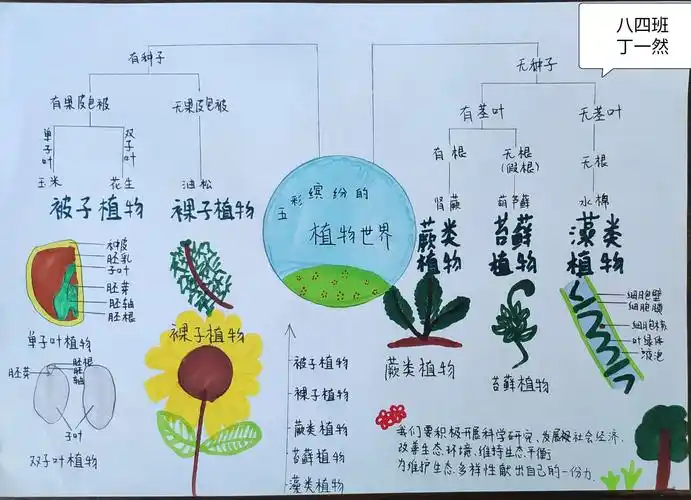 八四班
丁一然
有种子
无种子
有果皮包被
无果皮包被
有茎叶
无茎叶
单子叶
双子叶
有根
无根
(假根)
无根
玉米
花生
油松
肾蕨
葫芦藓
水棉
被子植物
裸子植物
五彩缤纷的
植物世界
蕨类
植物
苔藓
植物
藻类
植物
种皮
胚乳
子叶
胚芽
胚轴
胚根
单子叶植物
胚芽
胚根
胚轴
子叶
双子叶植物
裸子植物
被子植物
裸子植物
蕨类植物
苔藓植物
藻类植物
蕨类植物
苔藓植物
细胞壁
细胞膜
细胞核
叶绿体
液泡
我们要积极开展科学研究,发展社会经济,
改善生态环境,维持生态平衡
为维护生态多样性献出自己的一份力.